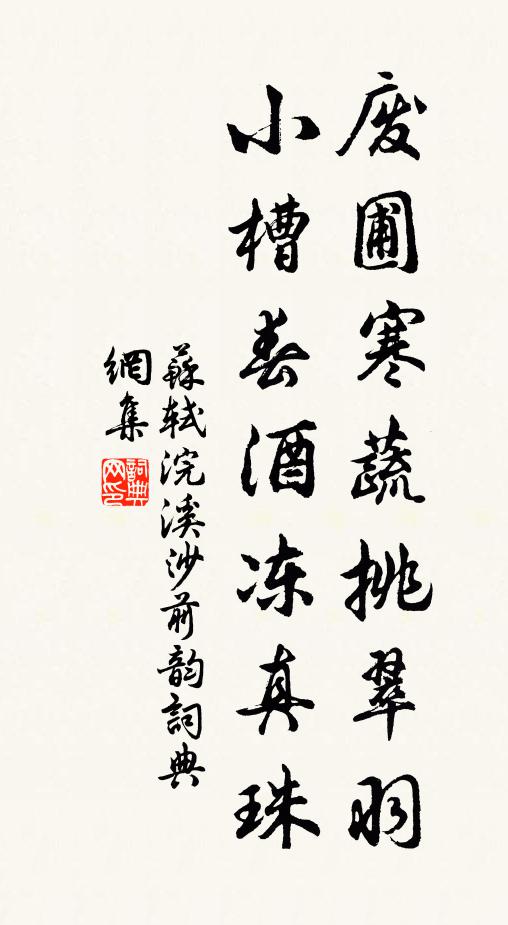 废圃寒蔬挑翠羽
小槽春酒冻真珠
蘇軾浣溪沙前韵詞典
網集
詞典網印